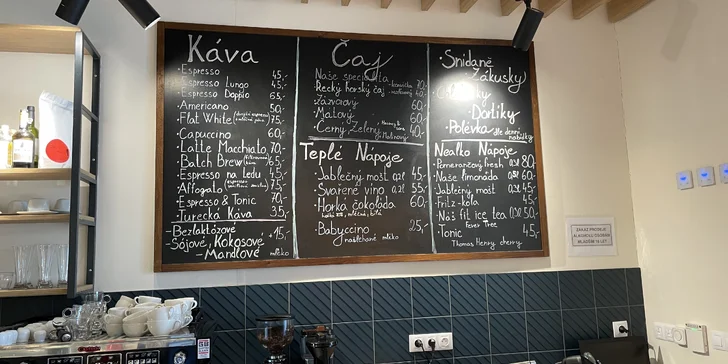 Káva
Espresso 45,-
Espresso Lungo 45,-
Espresso Doppio 65,-
Americano 50,-
Flat White 75,-
Capuccino 60,-
Latte Macchiato 70,-
Batch Brew 65,-
Espresso na Ledu 45,-
Affogato 75,-
Espresso & Tonic 70,-
Turecká Káva 35,-
-Bezlaktózové
-Sójové, Kokosové +15,-
-Mandlové mléko
Čaj
Naše specialita 70,-
Řecký horský čaj
Zázvorový 60,-
Mátový 60,-
Černý Zelený 40,-
Teplé Nápoje
Jablečný mošt 0,2l 45,-
Svařené víno 0,2l 55,-
Horká čokoláda 60,-
hořká, mléčná, bílá
Babyccino 25,-
našlehané mléko
Snídaně
Zákusky
Dortíky
Polévka dle denní nabídky
Nealko Nápoje
Pomerančový fresh 80,-
Naše limonáda 60,-
Jablečný mošt 45,-
Fritz-kola 60,-
Náš fit ice tea 50,-
Fever Tree
Tonic 45,-
Thomas Henry cherry
ZÁKAZ PRODEJE
ALKOHOLU OSOBÁM
MLADŠÍM 18 LET